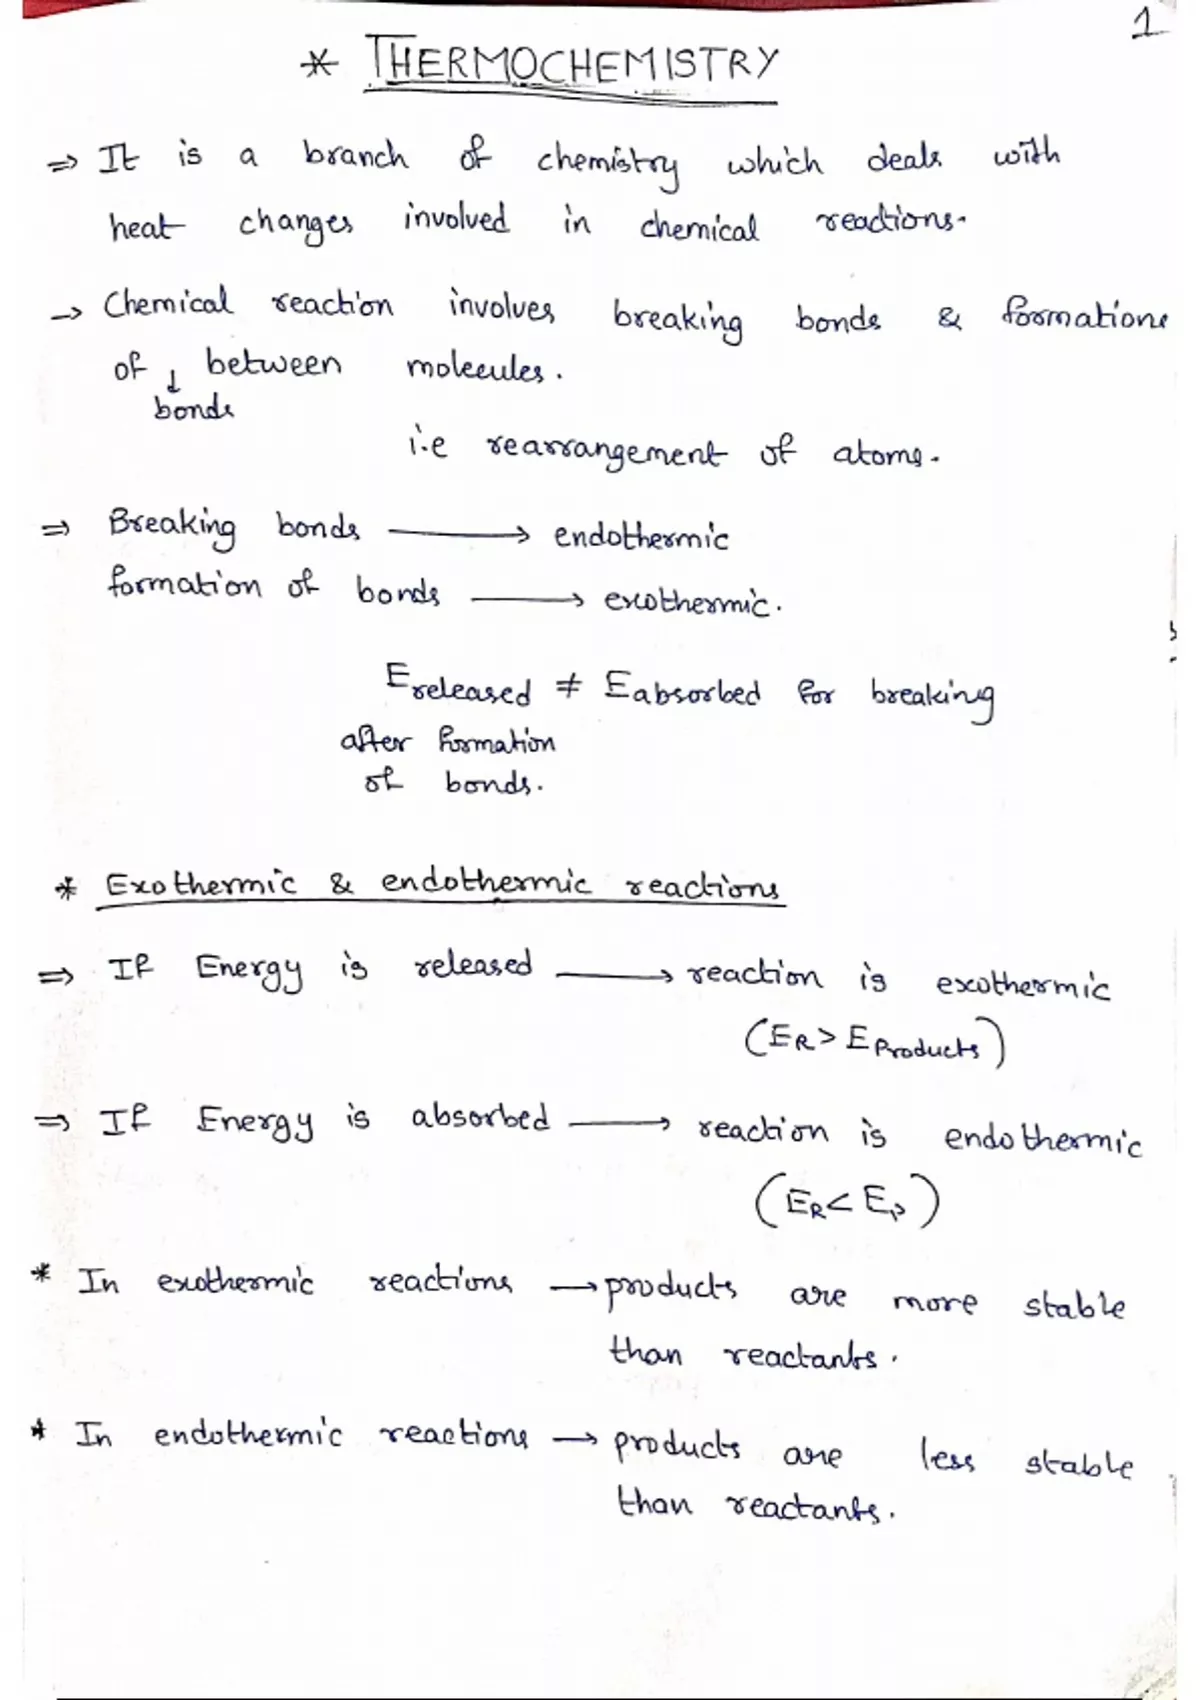 1
* THERMOCHEMISTRY
⇒ It is a branch of chemistry which deals with
heat changes involved in chemical reactions.
→ Chemical reaction involves breaking bonds & formations
of ↓ between molecules.
bonds
i.e rearrangement of atoms.
⇒ Breaking bonds ⟶ endothermic
formation of bonds ⟶ exothermic.
Ereleased ≠ Eabsorbed for breaking
after formation
of bonds.
* Exothermic & endothermic reactions
⇒ If Energy is released ⟶ reaction is exothermic
(ER > EProducts)
⇒ If Energy is absorbed ⟶ reaction is endothermic
(ER < Ep)
* In exothermic reactions → products are more stable
than reactants.
* In endothermic reactions → products are less stable
than reactants.